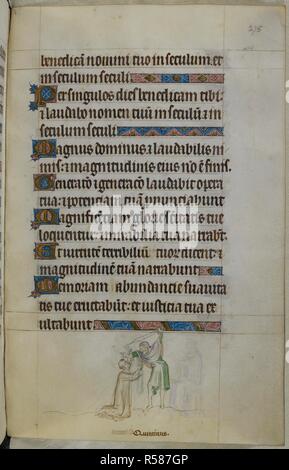 275
benedicam nomini tuo in seculum: et
in seculum seculi.
Per singulos dies benedicam tibi:
& laudabo nomen tuū in seculū & in
seculum seculi.
Magnus dominus & laudabilis ni
mis: & magnitudinis eius nō ē finis.
Generacō & generacō laudabit opera
tua: & potenciā tuā pnunciabunt
Magnificenciā glorie scītatis tue
loquentur: & mirabilia tua narrabt.
Et virtutē terribiliū tuor dicent: &
magnitudinē tuam narrabunt
Memoriam abundancie suauita
tis tue eructabūt: et iusticia tua ex
ultabunt
alamy